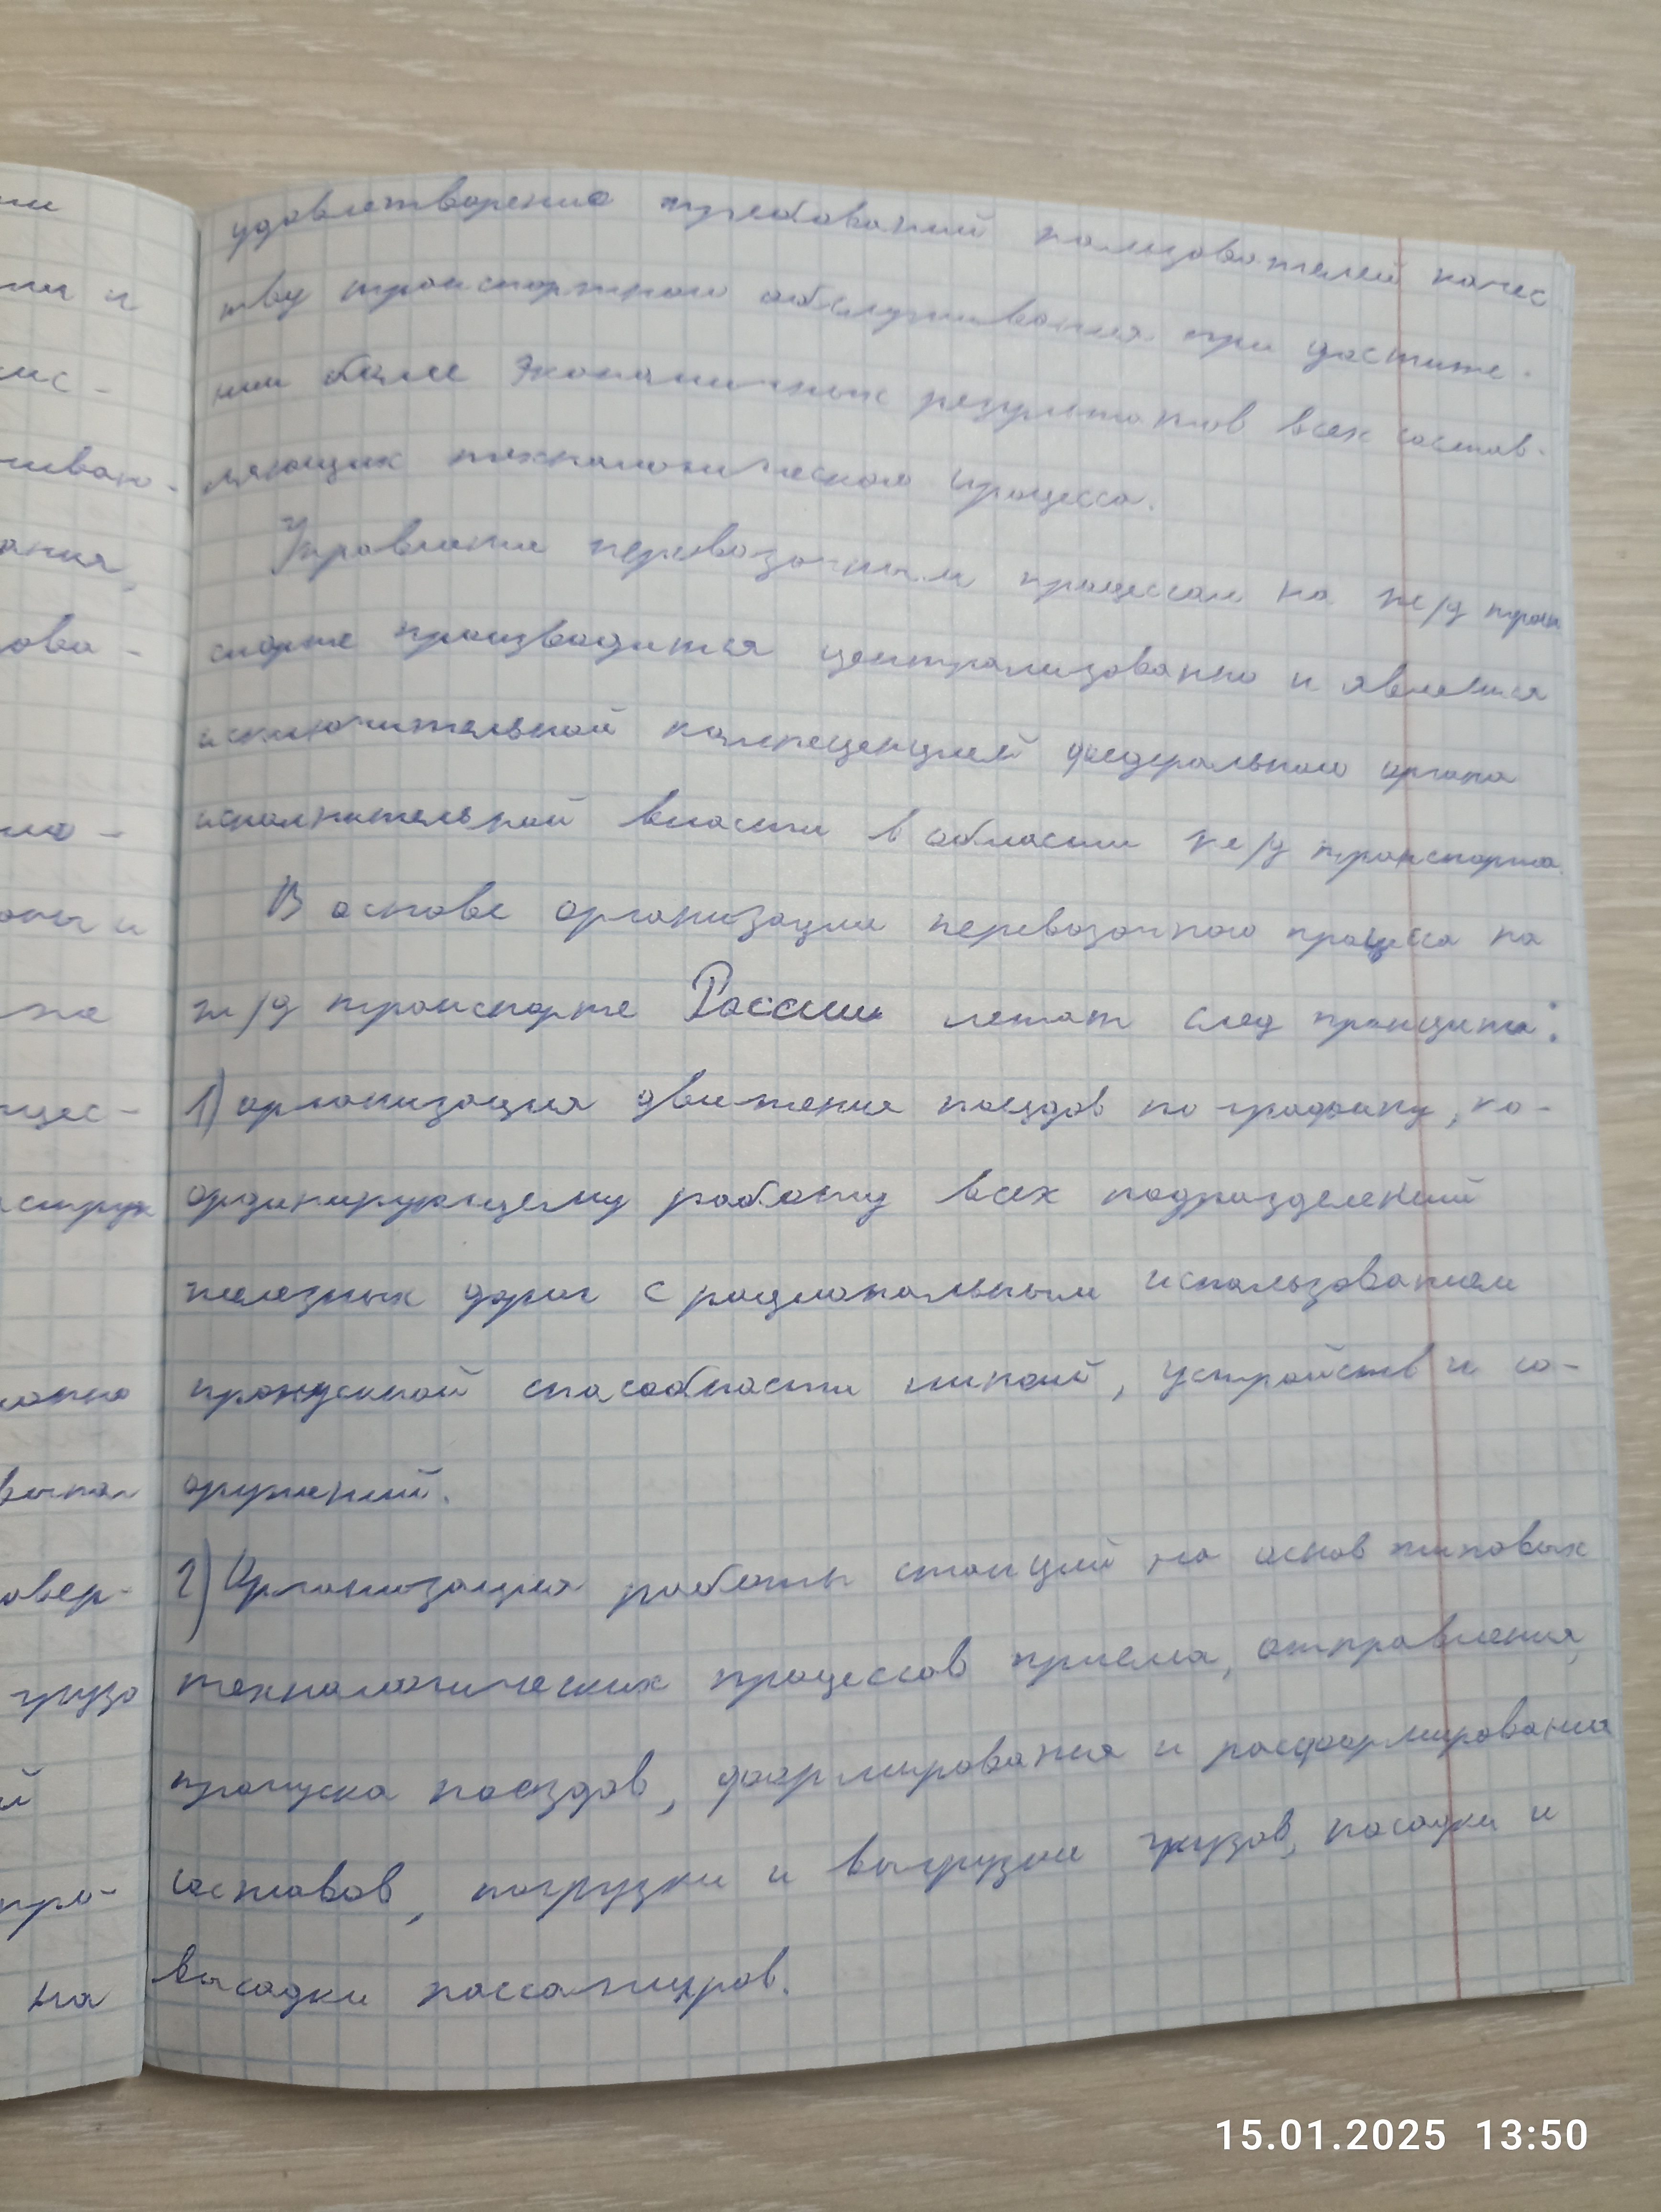 удовлетворение требований пользователей качес
тву транспортного обслуживания при достиже-
нии более экономичных результатов всех состав-
ляющих технологического процесса.
Управление перевозочным процессом на ж/д тран
спорте производится централизованно и является
исключительной компеценцией федерального органа
исполнительной власти в области ж/д транспорта
В основе организации перевозочного процесса на
ж/д транспорте России лежат след принципы:
1) организация движения поездов по графику, ко-
ординирующему работу всех подразделений
железных дорог с рациональным использованием
пропускной способности линий, устройств и со-
оружений.
2) Организация работы станций на основ типовых
технологических процессов приема, отправления,
пропуска поездов, формирования и расформирования
составов, погрузки и выгрузки грузов, посадки и
высадки пассажиров.
ми
ми и
ис-
ния,
ова-
на
цес-
струк
овер-
грузо
й
про-
на
15.01.2025 13:50